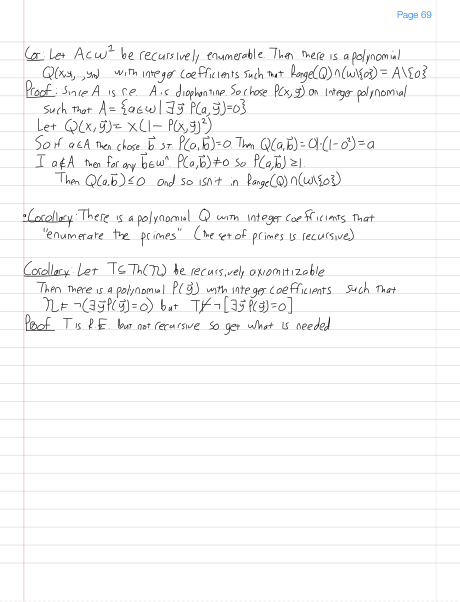 Page 69
Cor: Let A⊂ω¹ be recursively enumerable. Then there is a polynomial
Q(x,y,..,yn) with integer coefficients such that Range(Q)∩(ω\{0}) = A\{0}
Proof: Since A is r.e. A is diophantine. So chose P(x,ȳ) an integer polynomial
such that A = {a∈ω | ∃ȳ P(a,ȳ)=0}
Let Q(x,ȳ) = x(1-P(x,ȳ)²)
So if a∈A then chose b⃗ st P(a,b⃗)=0. Then Q(a,b⃗)=a(1-0²)=a
I a∉A then for any b⃗∈ωⁿ P(a,b⃗)≠0 so P(a,b⃗)≥1.
Then Q(a,b⃗)≤0 and so isn't in Range(Q)∩(ω\{0})
• Corollary: There is a polynomial Q with integer coefficients that
"enumerate the primes" (the set of primes is recursive)
Corollary: Let T⊆Th(N) be recursively axiomitizable
Then there is a polynomial P(ȳ) with integer coefficients such that
N⊨ ¬(∃ȳP(ȳ)=0) but T⊬¬[∃ȳP(ȳ)=0]
Proof T is R.E. but not recursive so get what is needed